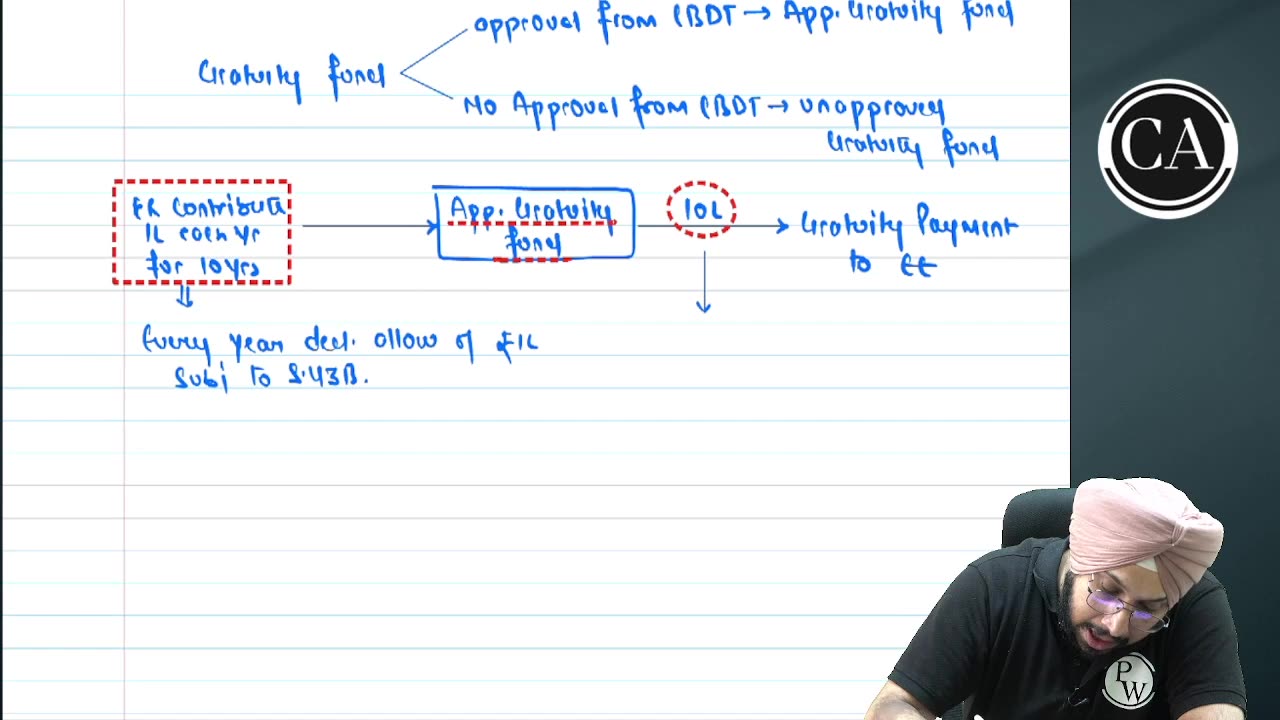 approval from CBDT → App. Gratuity fund
Gratuity fund
No Approval from CBDT → unapproved
Gratuity fund
ER contribute
1L each yr
for 10yrs
App. Gratuity
fund
10L
Gratuity Payment
to EE
Every year ded. allow of ₹1L
Subj to S.43B.
CA
PW